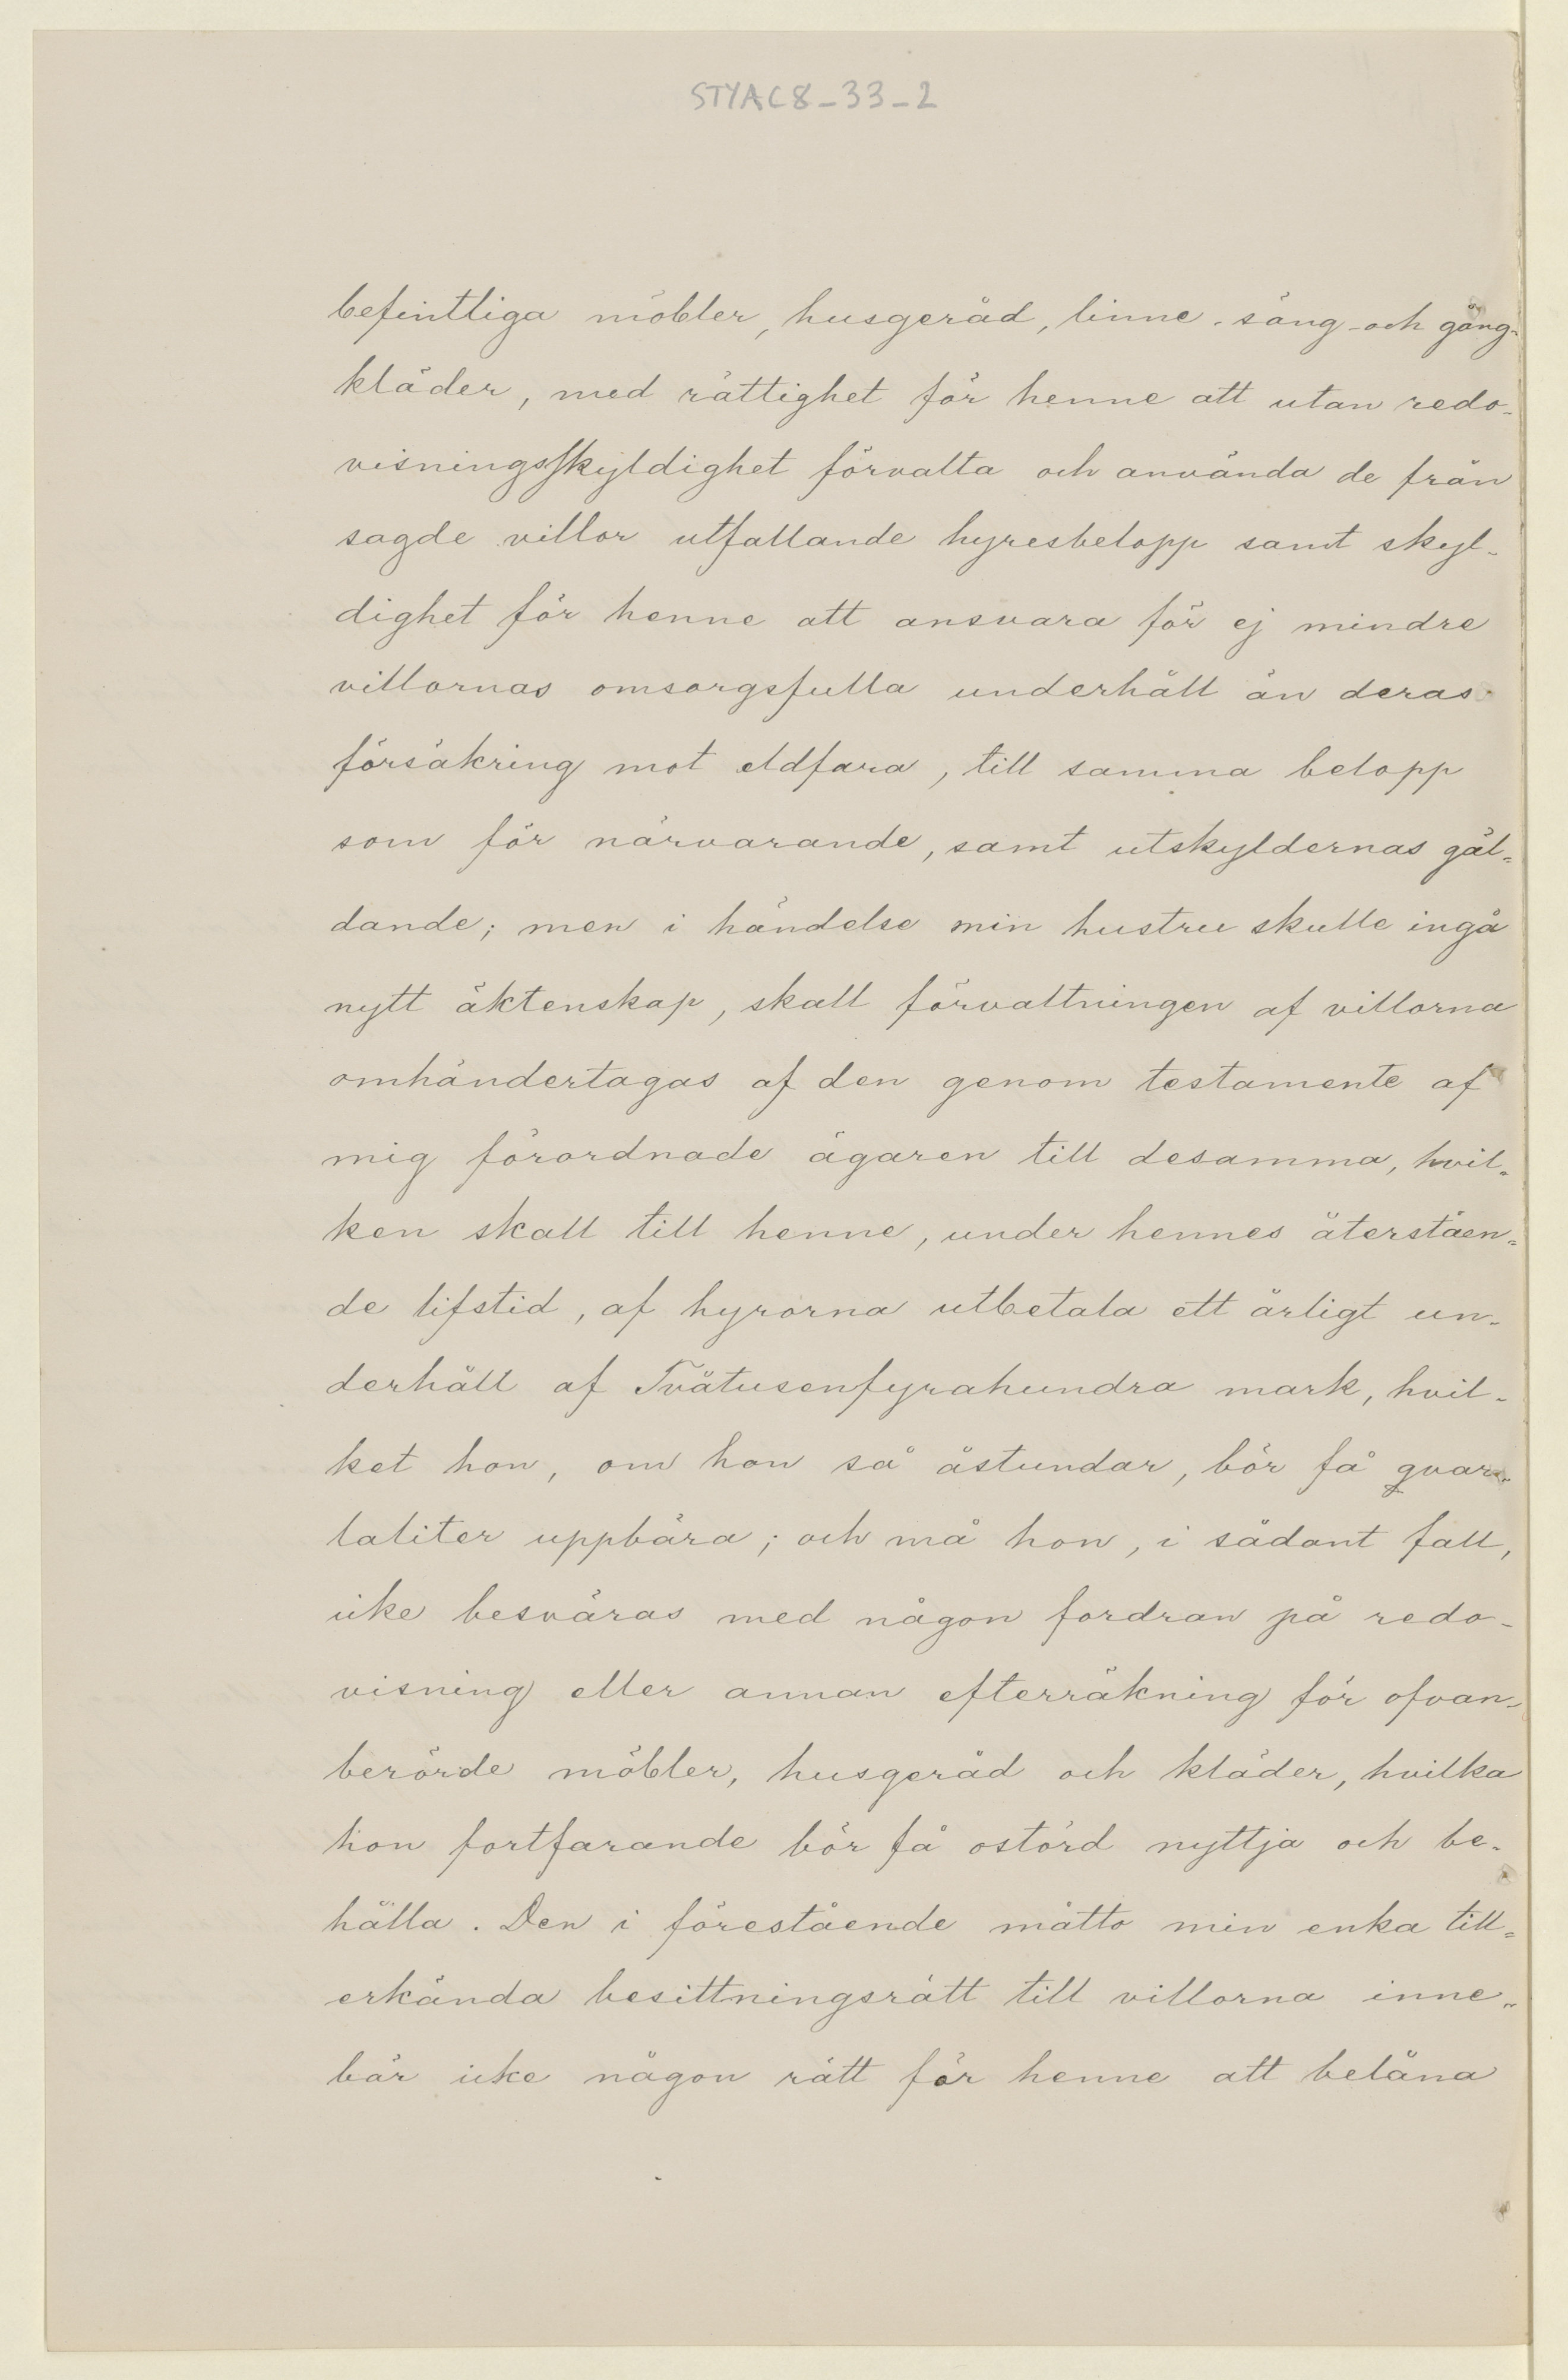 STYAC8_33_2
befintliga möbler, husgeråd, linne - säng - och gång-
kläder, med rättighet för henne att utan redo-
visningsskyldighet förvalta och använda de från
sagde villor utfallande hyresbelopp samt skyl-
dighet för henne att ansvara för ej mindre
villornas omsorgsfulla underhåll än deras
försäkring mot eldfara, till samma belopp
som för närvarande, samt utskyldernas gäl-
dande; men i händelse min hustru skulle ingå
nytt äktenskap, skall förvaltningen af villorna
omhändertagas af den genom testamente af
mig förordnade ägaren till desamma, hvil-
ken skall till henne, under hennes återståen-
de lifstid, af hyrorna utbetala ett årligt un-
derhåll af Tvåtusenfyrahundra mark, hvil-
ket hon, om hon så åstundar, bör få qvar-
taliter uppbära; och må hon, i sådant fall,
icke besväras med någon fordran på redo-
visning eller annan efterräkning för ofvan-
berörde möbler, husgeråd och kläder, hvilka
hon fortfarande bör få ostörd nyttja och be-
hålla. Den i förestående måtto min enka till-
erkända besittningsrätt till villorna inne-
bär icke någon rätt för henne att belåna